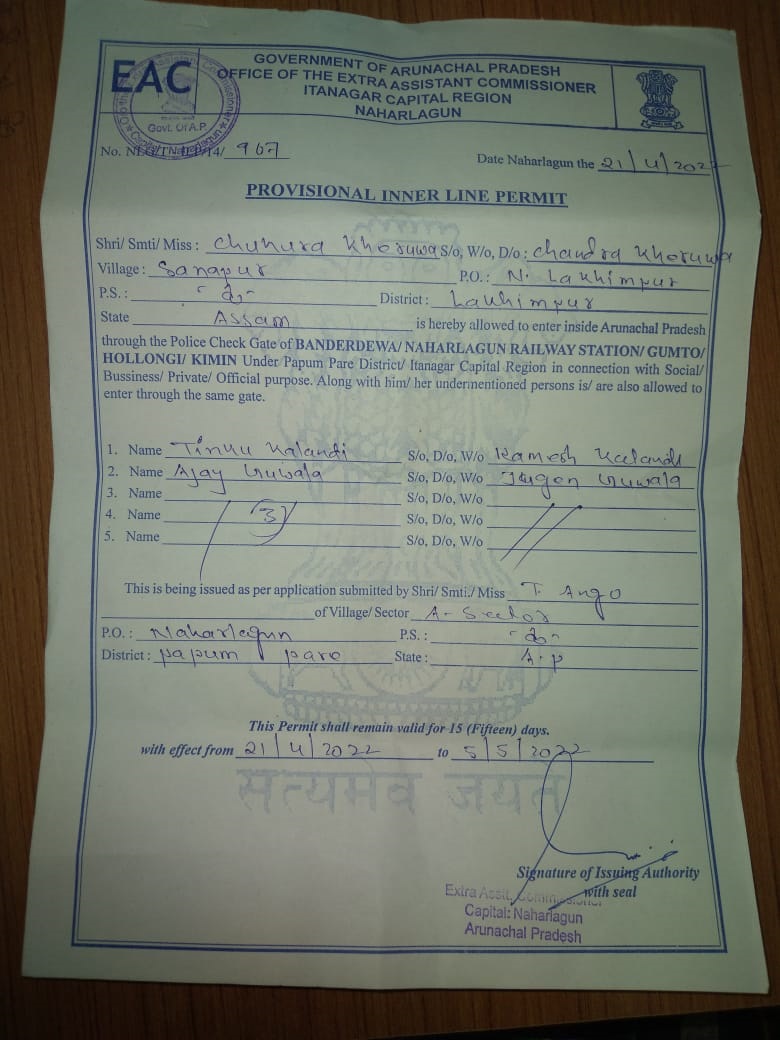 EAC
Govt. Of A.P.
GOVERNMENT OF ARUNACHAL PRADESH
OFFICE OF THE EXTRA ASSISTANT COMMISSIONER
ITANAGAR CAPITAL REGION
NAHARLAGUN
No. 14/ 967
Date Naharlagun the 21/4/2022
PROVISIONAL INNER LINE PERMIT
Shri/ Smti/ Miss : Chunura Kheruwa S/o, W/o, D/o : Chandra Kheruwa
Village : Sanapur P.O. : N. Lakhimpur
P.S. : District : Lakhimpur
State Assam is hereby allowed to enter inside Arunachal Pradesh
through the Police Check Gate of BANDERDEWA/ NAHARLAGUN RAILWAY STATION/ GUMTO/
HOLLONGI/ KIMIN Under Papum Pare District/ Itanagar Capital Region in connection with Social/
Bussiness/ Private/ Official purpose. Along with him/ her undermentioned persons is/ are also allowed to
enter through the same gate.
1. Name Tinku Kalandi S/o, D/o, W/o Ramesh Kalandi
2. Name Ajay Guwala S/o, D/o, W/o Jugen Guwala
3. Name S/o, D/o, W/o
4. Name (3) S/o, D/o, W/o
5. Name S/o, D/o, W/o
This is being issued as per application submitted by Shri/ Smti./ Miss T. Ango
of Village/ Sector A- Sector
P.O. : Naharlagun P.S. :
District : Papum pare State : A.p
This Permit shall remain valid for 15 (Fifteen) days.
with effect from 21/4/2022 to 5/5/2022
सत्यमेव जयते
Signature of Issuing Authority
with seal
Extra Assit. Commissioner
Capital: Naharlagun
Arunachal Pradesh